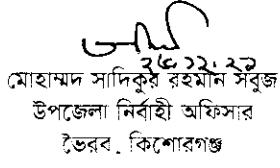 ২৮.১২.২১
মোহাম্মদ সাদিকুর রহমান সবুজ
উপজেলা নির্বাহী অফিসার
ভৈরব, কিশোরগঞ্জ